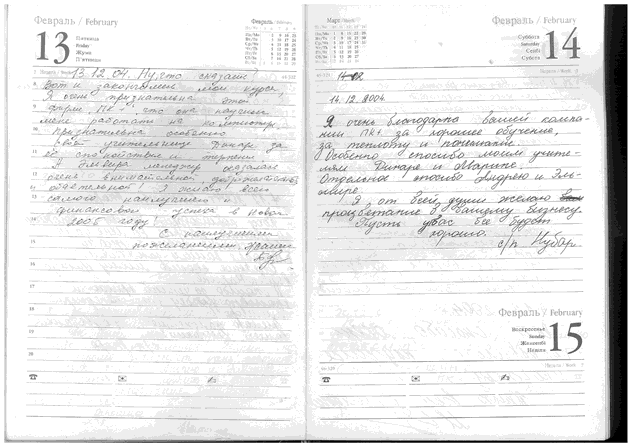 Февраль / February
13
Пятница
Friday
Жума
П'ятниця
Февраль / February
13.12.04. Ну, что сказать?
Вот и закончились мои курсы,
Я очень признательна этой
фирме „ПК+", что она научила
меня работать на компьютере.
Признательна особенно
своей учительнице Динаре за
её спокойствие и терпение.
А девушка менеджер оказалась
очень внимательной, доброжелательной,
обаятельной! Я желаю всего
самого наилучшего и
финансового успеха в Новом
2005 году!
С наилучшими
пожеланиями
Март
Февраль / February
14
Суббота
Saturday
Сенбі
Субота
14.12.2004.
Я очень благодарна вашей компа-
нии ПК+ за хорошее обучение,
за теплоту и понимание.
Особенно спасибо моим учите-
лям Динаре и Марине.
Отдельное спасибо Андрею и Эль-
мире.
Я от всей души желаю
процветание в вашему бизнесу.
Пусть у вас все будет
хорошо.
с/п Нубар
Февраль / February
15
Воскресенье
Sunday
Жексенбі
Неділя